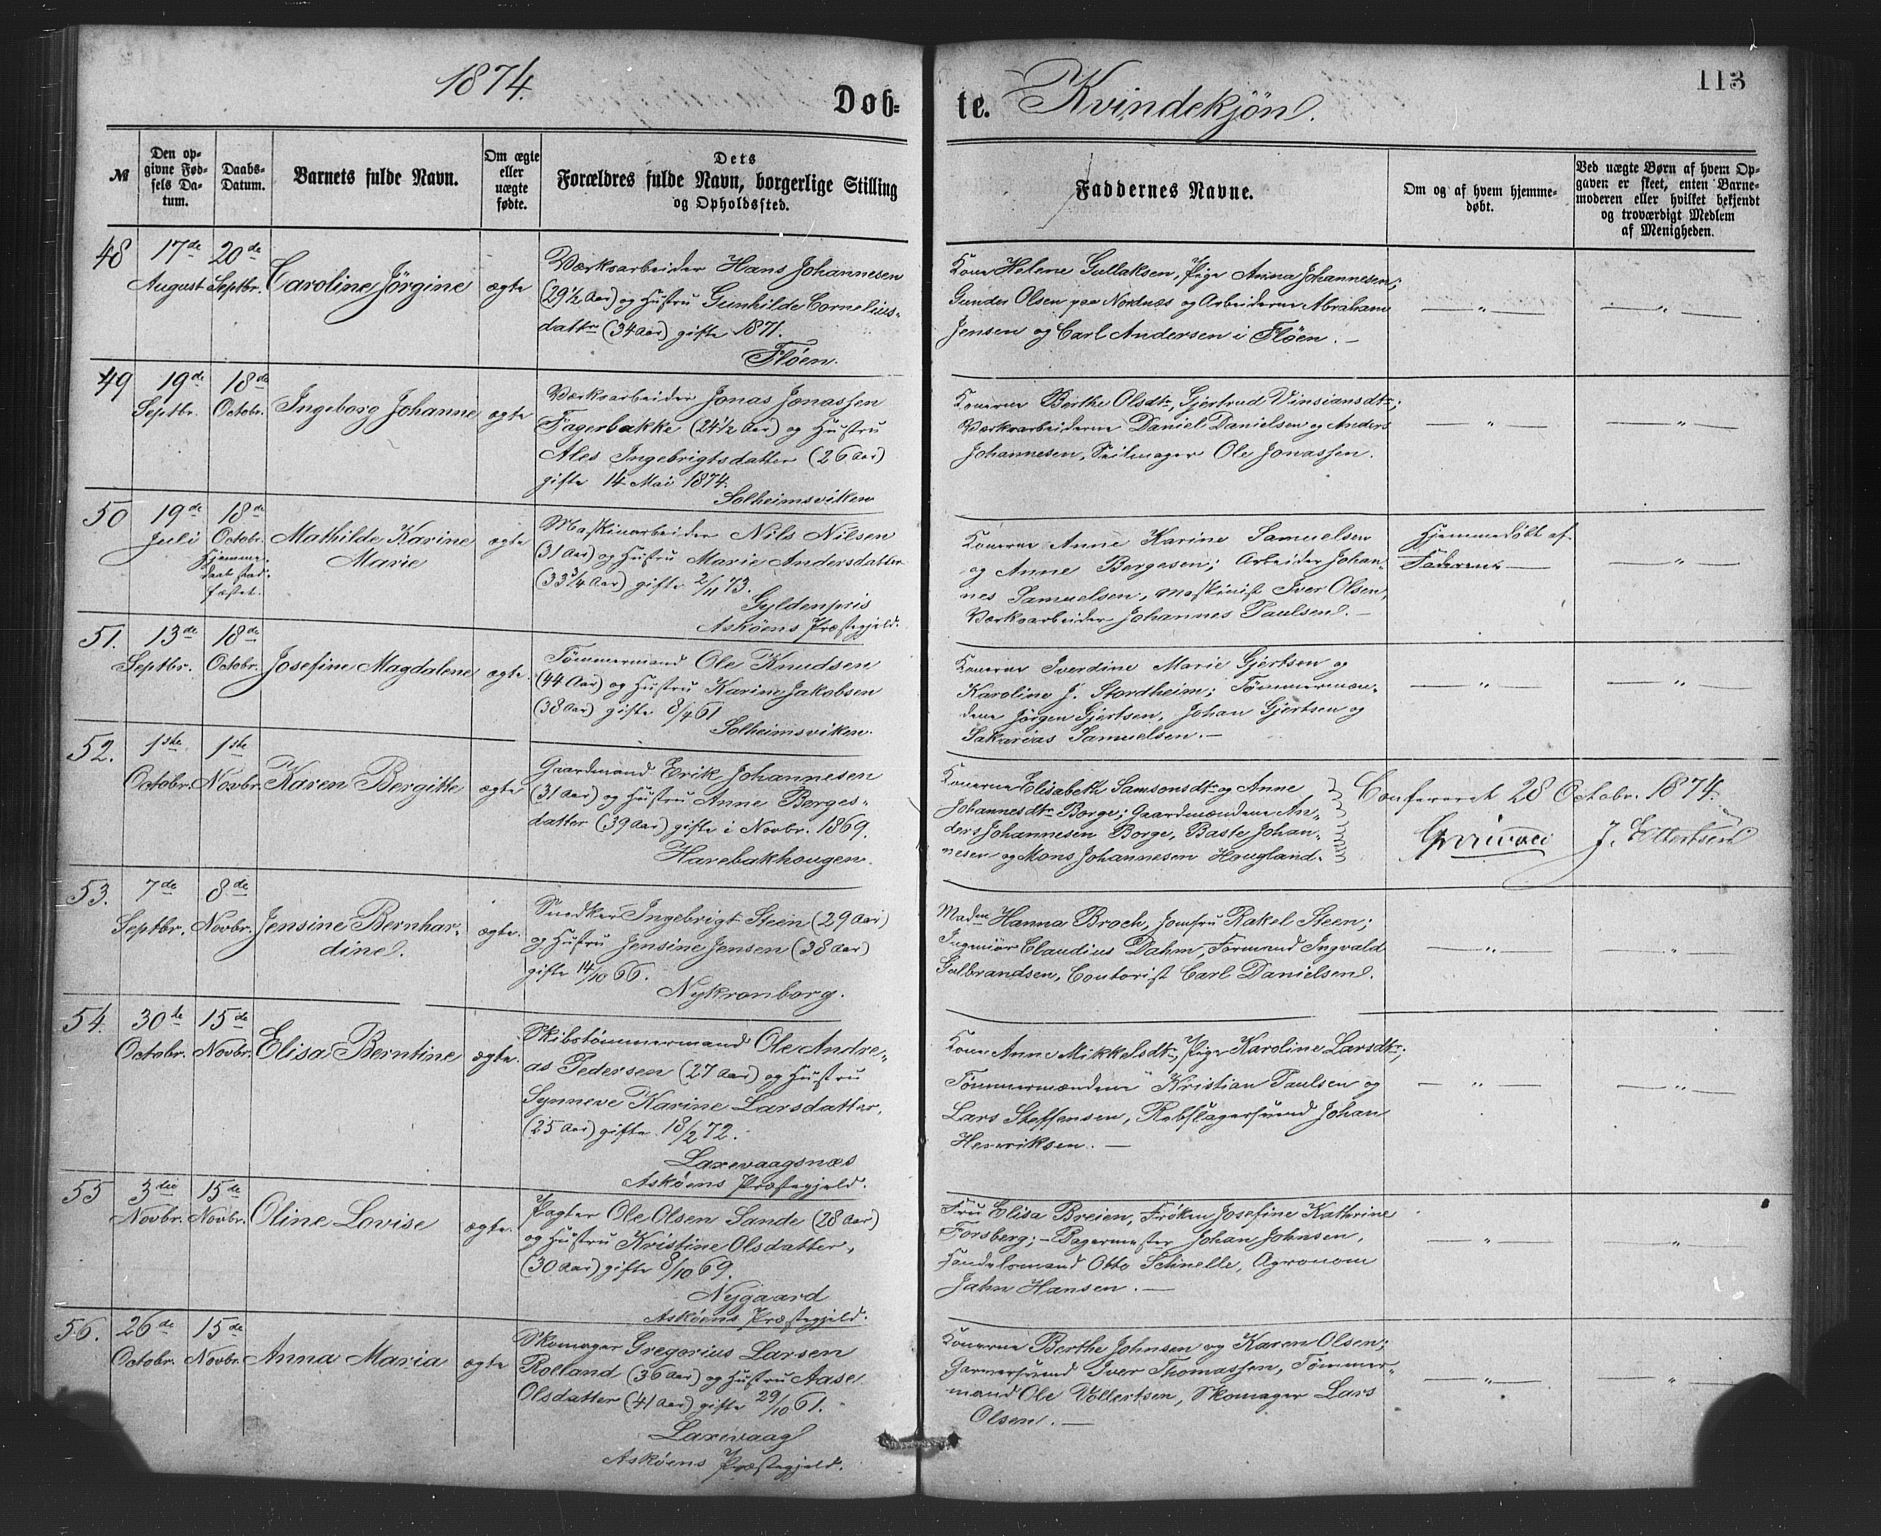 1874.
Døb-
te. Kvindekjøn.
113
№
Den opgivne Fødsels Datum.
Daabs-Datum.
Barnets fulde Navn.
Om ægte eller uægte fødte.
Dets Forældres fulde Navn, borgerlige Stilling og Opholdssted.
Faddernes Navne.
Om og af hvem hjemmedøbt.
Ved uægte Børn af hvem Opgaven er skeet, enten Barnemoderen eller hvilket bekjendt og troværdigt Medlem af Menigheden.
48
17de August
20de Septbr.
Caroline Jörgine
ægte
Værksarbeider Hans Johannesen
(29 1/2 Aar) og Hustru Gunhilde Cornelius-
datter (34 Aar) gifte 1871.
Fløen.
Kone Helene Gullaksen, Pige Anna Johannesen;
Gunder Olsen paa Nordnæs og Arbeiderne Abraham
Jensen og Carl Andersen i Fløen. —
— " —
— " —
49
19de Septbr.
18de Octobr.
Ingeborg Johanne
ægte
Værksarbeider Jonas Jonassen
Fagerbakke (24 1/2 Aar) og Hustru
Ales Ingebrigtsdatter (26 Aar)
gifte 14 Mai 1874.
Solheimsviken
Konerne Berthe Olsdtr, Gjertrud Vinsiansdtr;
Værksarbeiderne Daniel Danielsen og Anders
Johannesen, Seilmager Ole Jonassen.
— " —
— " —
50
19de Juli
18de Octobr.
Hjemme-
daab stad-
fæstet.
Mathilde Karine
Marie
ægte
Maskinarbeider Nils Nilsen
(31 Aar) og Hustru Marie Andersdatter
(33 3/4 Aar) gifte 2/11 73.
Gyldenpris
Askøens Præstegjeld.
Konerne Anne Karine Samuelsen
og Anne Børgesen; Arbeider Johan-
nes Samuelsen, Maskinist Iver Olsen,
Værksarbeider Johannes Paulsen. —
Hjemmedøbt af
Faderen. —
— " —
51.
13de Septbr.
18de Octobr.
Josefine Magdalene
ægte.
Tømmermand Ole Knudsen
(44 Aar) og Hustru Karine Jakobsen
(38 Aar) gifte 8/4 61.
Solheimsviken.
Konerne Iverdine Marie Gjertsen og
Karoline J. Stordheim; Tømmermæn-
dene Jörgen Gjertsen, Johan Gjertsen og
Sakarias Samuelsen. —
— " —
— " —
52.
1ste Octobr.
1ste Novbr.
Karen Bergitte
ægte
Gaardmand Erik Johannesen
(31 Aar) og Hustru Anne Børges-
datter (39 Aar) gifte i Novbr. 1869.
Harebakhougen.
Konerne Elisabeth Samsonsdtr og Anne
Johannesdtr Borge; Gaardmændene An-
ders Johannesen Borge, Baste Johan-
nesen og Mons Johannesen Hougland.
Confereret 28 Octobr. 1874.
53.
7de Septbr.
8de Novbr.
Jensine Bernhar-
dine.
ægte.
Snedker Ingebrigt Steen (29 Aar)
og Hustru Jensine Jensen (38 Aar)
gifte 14/10 66.
Nykronborg.
Madm Hanna Broch, Jomfru Rakel Steen;
Ingeniør Claudius Dahm, Formand Ingvald
Gulbrandsen, Contorist Carl Danielsen.
— " —
"
54.
30te Octobr.
15de Novbr.
Elisa Berntine
ægte.
Skibstømmermand Ole Andre-
as Pedersen (27 Aar) og Hustru
Synneve Karine Larsdatter,
(25 Aar) gifte 18/2 72.
Laxevaagsnæs
Askøens Præstegjeld.
Kone Anne Mikkelsdtr, Pige Karoline Larsdtr;
Tømmermændene Kristian Paulsen og
Lars Steffensen, Rebslagersvend Johan
Henriksen. —
— " —
— " —
55
3die Novbr.
15de Novbr.
Oline Lovise
ægte.
Pagter Ole Olsen Sande (28 Aar)
og Hustru Kristine Olsdatter,
(30 Aar) gifte 8/10 69.
Nygaard
Askøens Præstegjeld.
Fru Elisa Breien, Frøken Josefine Kathrine
Forsberg; — Bagermester Johan Johnsen,
Handelsmand Otto Schnelle, Agronom
Jahn Hansen. —
— " —
"
56.
26de Octobr.
15de Novbr.
Anna Maria
ægte
Skomager Gregorius Larsen
Rolland (36 Aar) og Hustru Aase
Olsdatter (41 Aar) gifte 29/10 61.
Laxevaag
Askøens Præstegjeld.
Konerne Berthe Johnsen og Karen Olsen;
Garversvend Iver Thomassen, Tømmer-
mand Ole Vollertsen, Skomager Lars
Olsen. —
— " —
— " —